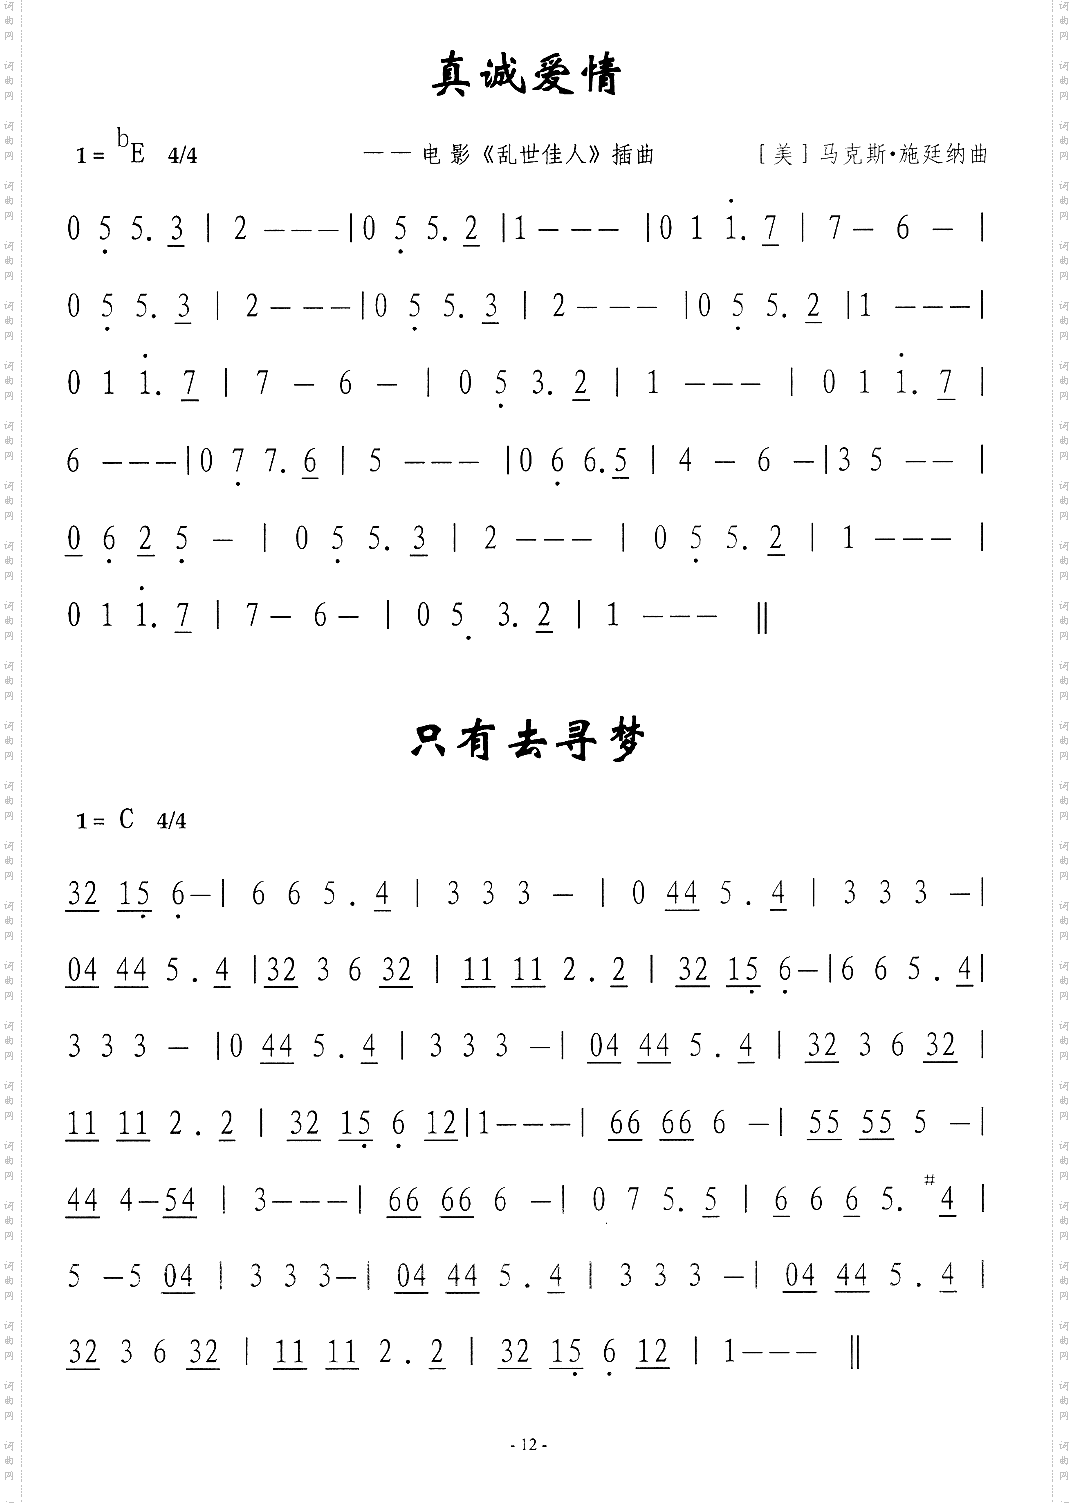 真诚爱情
1= bE 4/4 ——电影《乱世佳人》插曲 [美]马克斯·施廷纳曲
0 5̣ 5. 3 | 2 - - - | 0 5̣ 5. 2 | 1 - - - | 0 1 1̇. 7 | 7 - 6 - |
0 5̣ 5. 3 | 2 - - - | 0 5̣ 5. 3 | 2 - - - | 0 5̣ 5. 2 | 1 - - - |
0 1 1̇. 7 | 7 - 6 - | 0 5̣ 3. 2 | 1 - - - | 0 1 1̇. 7 |
6 - - - | 0 7̣ 7. 6 | 5 - - - | 0 6̣ 6. 5 | 4 - 6 - | 3 5 - - |
0 6̣ 2 5̣ - | 0 5̣ 5. 3 | 2 - - - | 0 5̣ 5. 2 | 1 - - - |
0 1 1̇. 7 | 7 - 6 - | 0 5̣ 3. 2 | 1 - - - ‖
只有去寻梦
1= C 4/4
32 15̣ 6̣ - | 6 6 5 . 4 | 3 3 3 - | 0 44 5 . 4 | 3 3 3 - |
04 44 5 . 4 | 32 3 6 32 | 11 11 2 . 2 | 32 15̣ 6̣ - | 6 6 5 . 4 |
3 3 3 - | 0 44 5 . 4 | 3 3 3 - | 04 44 5 . 4 | 32 3 6 32 |
11 11 2 . 2 | 32 15̣ 6̣ 12 | 1 - - - | 66 66 6 - | 55 55 5 - |
44 4 - 54 | 3 - - - | 66 66 6 - | 0 7 5. 5 | 6 6 6 5. #4 |
5 - 5 04 | 3 3 3 - | 04 44 5 . 4 | 3 3 3 - | 04 44 5 . 4 |
32 3 6 32 | 11 11 2 . 2 | 32 15̣ 6̣ 12 | 1 - - - ‖
- 12 -
词曲网